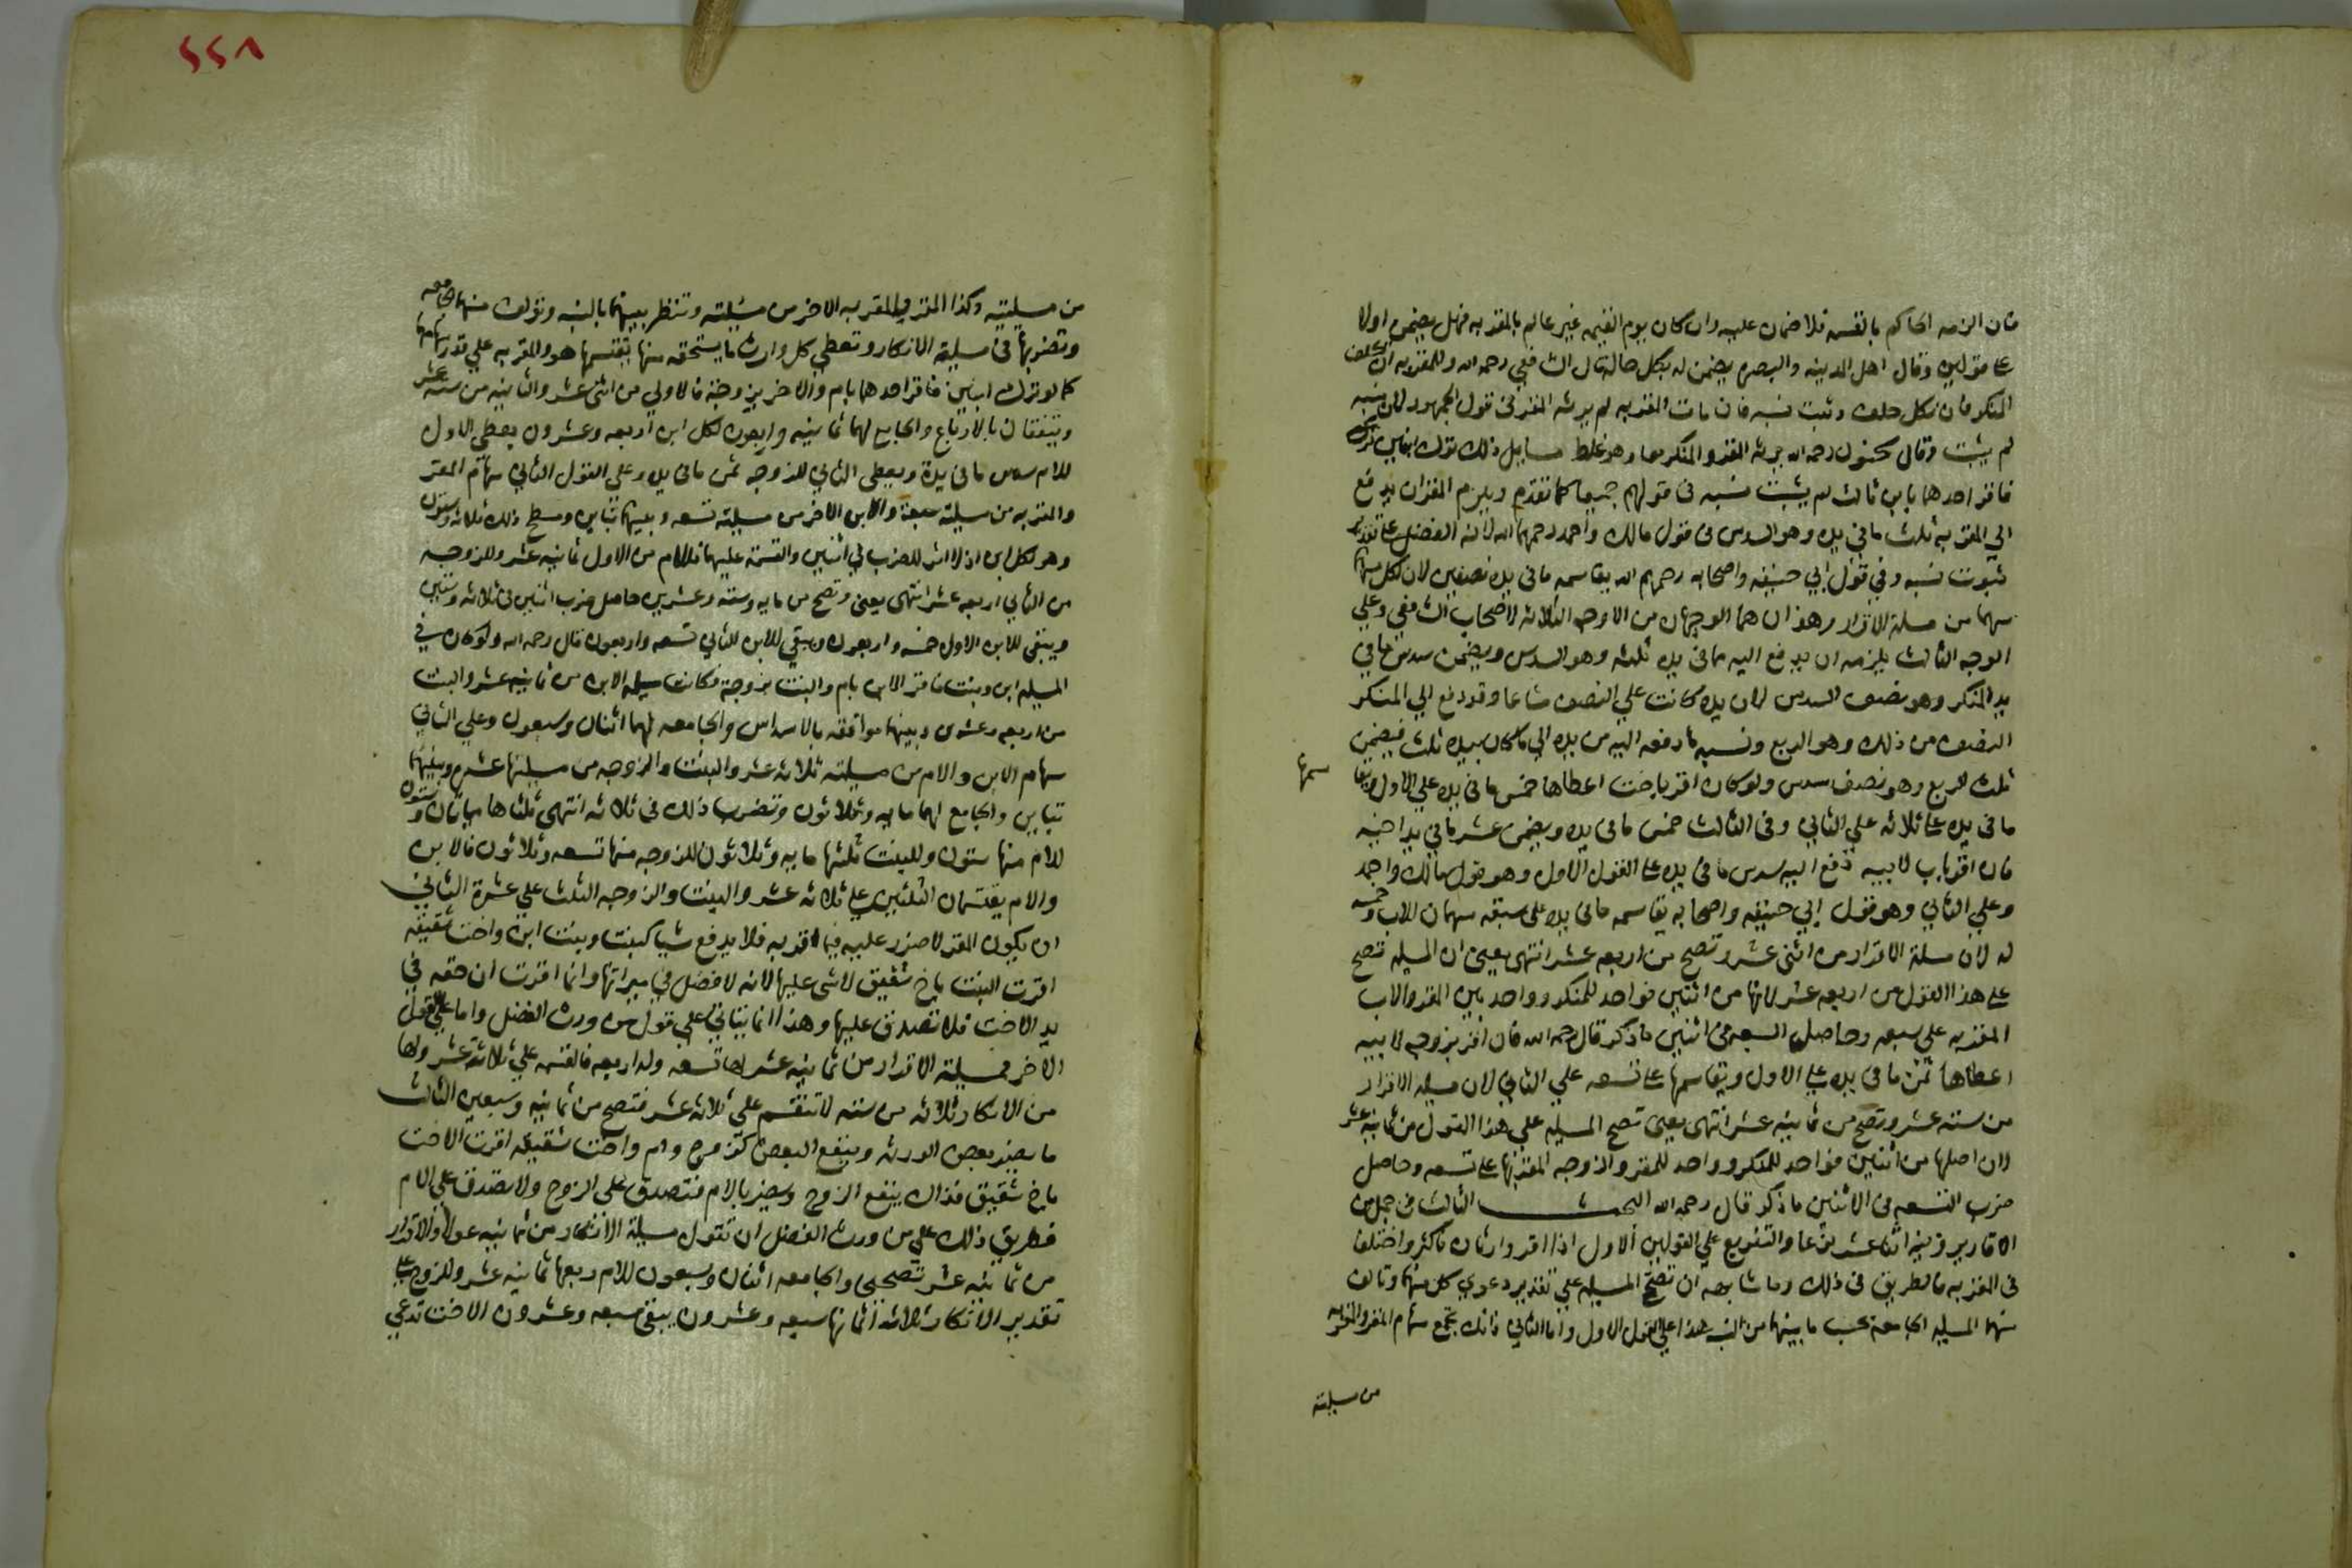 فان الزمه الحاكم بالقسمه فلا ضمان عليه وان كان يوم القسمه غير عالم بالمقر به فهل يضمن اولا
على قولين وقال اهل المدينه والبصره يضمن له بكل حالة قال الشافعي رحمه الله وللمقر به ان يحلف
المنكر فان نكل حلف وثبت نسبه فان مات المقر به لم يرثه المقر في قول الجمهور لان نسبه
لم يثبت وقال سحنون رحمه الله يرثه المقر والمنكر معا وهو غلط مسايل ذلك ترك ابنين
فاقر احدهما بابن ثالث لم يثبت نسبه في قولهم جميعا كما تقدم ويلزم المقر ان يدفع
الي المقر به ثلث ما في يده وهو السدس في قول مالك واحمد رحمهما الله لانه الفضل على تقدير
ثبوت نسبه وفي قول ابي حنيفه واصحابه رحمهم الله يقاسمه ما في يده نصفين لان لكل منهما
سهما من مسلة الاقرار وهذان هما الوجهان من الاوجه الثلاثه لاصحاب الشافعي وعلي
الوجه الثالث يلزمه ان يدفع اليه مما في يده ثلثه وهو السدس ويضمن سدس ما في
يد المنكر وهو نصف السدس لان يده كانت علي النصف شاعا وقد دفع الي المنكر
النصف من ذلك وهو الربع ونسبه ما دفعه اليه من يده الي ما كان بيده ثلث فيضمن
ثلث الربع وهو نصف سدس ولو كان اقر باخت اعطاها خمس ما في يده علي الاول ويقاسمها
ما في يده على ثلاثه علي الثاني وفي الثالث خمس ما في يده ويضمن عشر ما في يد اخيه
فان اقر باب لابيه دفع اليه سدس ما في يده على القول الاول وهو قول مالك واحمد
وعلي الثاني وهو قول ابي حنيفه واصحابه يقاسمه ما في يده على سبعه سهمان للاب وخمسه
له لان مسلة الاقرار من اثنى عشر وتصح من اربعه عشر انتهى يعني ان المسيله تصح
على هذا القول من اربعه عشر لانها من اثنين فواحد للمنكر وواحد بين المقر والاب
المقر به على سبعه وحاصل السبعه في اثنين ما ذكر قال رحمه الله فان اقر بزوجه لابيه
اعطاها ثمن ما في يده على الاول ويقاسمها على تسعه علي الثاني لان مسيله الاقرار
من سته عشر وتصح من ثمانيه عشر انتهى يعني تصح المسيله علي هذا القول من ثمانيه عشر
لان اصلها من اثنين فواحد للمنكر وواحد للمقر والزوجه المقر بها على تسعه وحاصل
ضرب التسعه في الاثنين ما ذكر قال رحمه الله البحث الثالث في جمل من
الاقارير وفيه اثنا عشر نوعا والتفريع على القولين الاول اذا اقر وارثان فاكثر واختلفا
في المقر به فالطريق في ذلك وما شابهه ان تصحح المسيله علي تقدير دعوي كل منهما وتالف
منهما المسيله الجامعة بحسب ما بينهما من النسب هذا على القول الاول واما الثاني فانك تجمع سهام المقر والمقر به
من مسيلته
٢٢٨
من مسيلتيه وكذا المقر والمقر به الاخر من مسيلته وتنظر بينهما بالنسبه وتولف منهما الجامعه
وتضربها في مسيلة الانكار وتعطي كل وارث ما يستحقه منها يقتسمها هو والمقر به علي قدر سهامهما
كما لو ترك ابنين فاقر احدهما بام والاخر بزوجة فالاولي من اثني عشر والثانيه من سته عشر
ويتفقان بالارباع والجامع لهما ثمانيه واربعون لكل ابن اربعه وعشرون يعطي الاول
للام سدس ما في يده ويعطي الثاني للزوجه ثمن ما في يده وعلى القول الثاني سهام المقر
والمقر به من مسيلته سبعة والابن الاخر من مسيلته تسعه وبينهما تباين ومسطح ذلك ثلاثه وستون
وهو لكل ابن اذ لا اثر للضرب في اثنين والقسمة عليهما فللام من الاول ثمانيه عشر وللزوجه
من الثاني اربعه عشر انتهى يعني وتصح من مايه وسته وعشرين حاصل ضرب اثنين في ثلاثه وستين
ويبقى للابن الاول خمسه واربعون ويبقي للابن الثاني تسعه واربعون قال رحمه الله ولو كان في
المسيله ابن وبنت فاقر الابن بام والبنت بزوجة فكانت مسيله الابن من ثمانيه عشر والبنت
من اربعه وعشرين وبينهما موافقه بالاسداس والجامعه لهما اثنان وسبعون وعلي الثاني
سهام الابن والام من مسيلته ثلاثه عشر والبنت والزوجه من مسيلتها عشره وبينهما
تباين والجامع لهما مايه وثلاثون وتضرب ذلك في ثلاثه انتهى ثلثاها مايتان وستون
للام منها ستون وللبنت ثلثها مايه وثلاثون للزوجه منها تسعه وثلاثون فالابن
والام يقتسمان الثلثين على ثلاثه عشر والبنت والزوجه الثلث علي عشرة الثاني
ان يكون المقر لا ضرر عليه فيما اقر به فلا يدفع شيا كبنت وبنت ابن واخت شقيقه
اقرت البنت باخ شقيق لا شي عليها لانه لا فضل في ميراثها وانما اقرت ان حقه في
يد الاخت فلا تصدق عليها وهذا انما يتاتي علي قول من ورث الفضل واما على قول
الاخر فمسيلة الاقرار من ثمانيه عشر لها تسعه وله اربعه فالقسمه علي ثلاثة عشر ولها
من الانكار ثلاثه من سته لا تنقسم علي ثلاثه عشر فتصح من ثمانيه وسبعين الثالث
ما يضر بعض الورثه وينفع البعض كزوج وام واخت شقيقه اقرت الاخت
باخ شقيق فذاك ينفع الزوج ويضر بالام فتصدق على الزوج ولا تصدق على الام
فطريق ذلك علي من ورث الفضل ان تقول مسيلة الانكار من ثمانيه عولا والاقرار
من ثمانيه عشر تصحيحا والجامعه اثنان وسبعون للام ربعها ثمانيه عشر وللزوج على
تقدير الانكار ثلاثه اثمانها سبعه وعشرون يبقى سبعه وعشرون الاخت تدعي